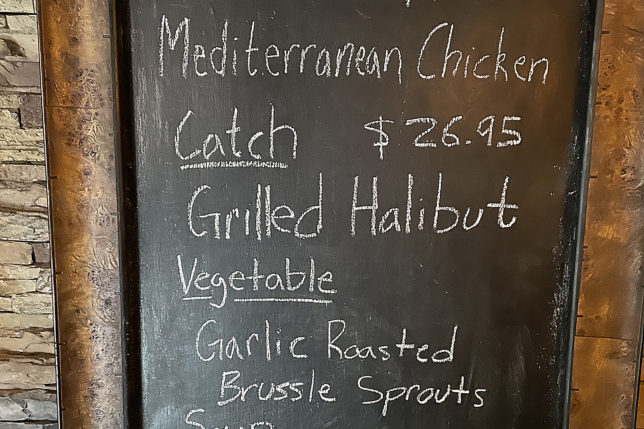 Mediterranean Chicken
Catch $26.95
Grilled Halibut
Vegetable
Garlic Roasted
Brussle Sprouts
Soup